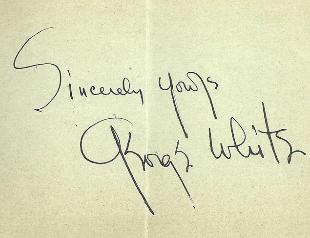 Sincerely yours
George White